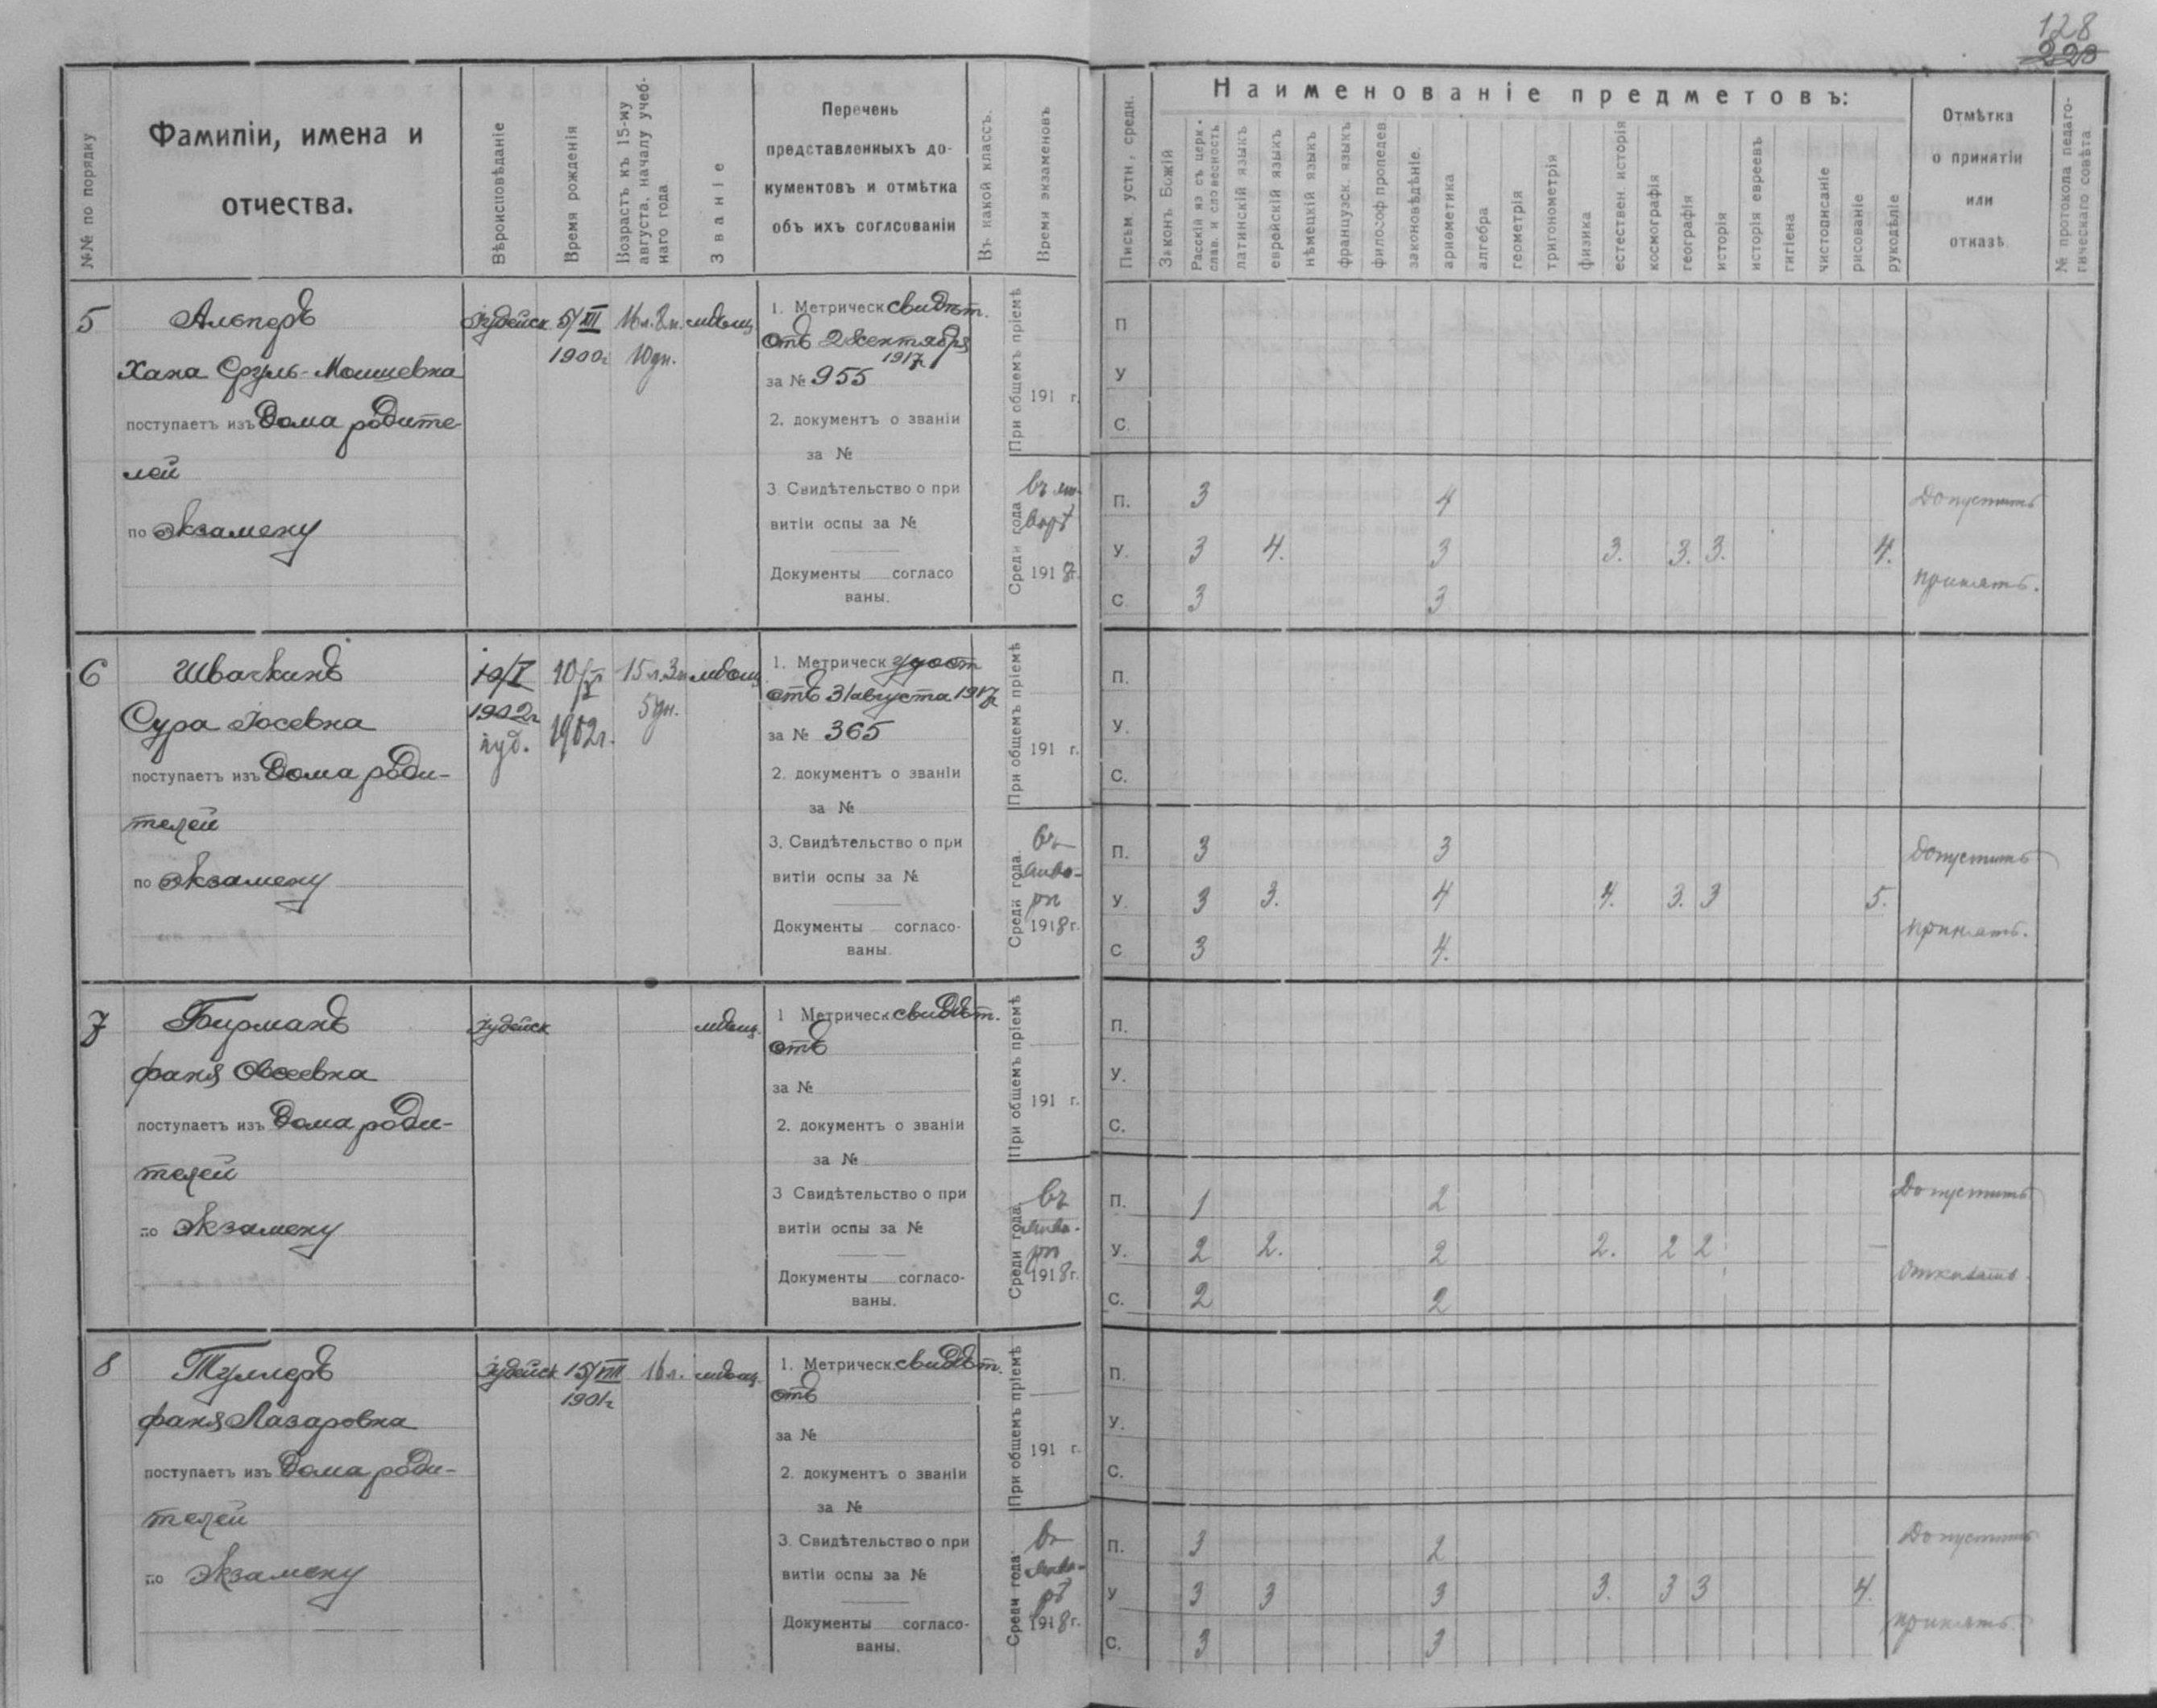 128
223
№№ по порядку
Фамиліи, имена и
отчества.
Вѣроисповѣданіе
Время рожденія
Возрастъ къ 15-му
августа, началу учеб-
наго года
Званіе
Перечень
представленныхъ до-
кументовъ и отмѣтка
объ ихъ согласованіи
Въ какой классъ.
Время экзаменовъ
Письм. устн., средн.
Наименованіе предметовъ:
Законъ Божій
Русскій яз съ церк.
слав. и словесность
латинскій языкъ
еврейскій языкъ
нѣмецкій языкъ
французск. языкъ
философ пропедев
законовѣдѣніе.
ариѳметика
алгебра
геометрія
тригонометрія
физика
естествен. исторія
космографія
географія
исторія
исторія евреевъ
гигіена
чистописаніе
рисованіе
рукодѣліе
Отмѣтка
о принятіи
или
отказѣ
№ протокола педаго-
гическаго совѣта
5
Альперъ
Хана Сруль-Мошевна
поступаетъ изъ Дома родите-
лей
по экзамену
Іудейск 5/XII 16 л. 8 м. мѣщ.
1900г 10 дн.
1. Метрическ свидѣт.
отъ 2 сентября
1917г
за № 955
2. документъ о званіи
за №
3 Свидѣтельство о при
витіи оспы за №
Документы согласо
ваны.
При общемъ пріемѣ
191 г.
Среди года
въ ян-
варѣ
1918г.
П
У
С.
П. 3 4
У. 3 4. 3 3. 3. 3. 4.
С 3 3
Допустить
принять.
6
Швачкинъ
Сура Іосевна
поступаетъ изъ Дома роди-
телей
по экзамену
10/V
1902г
іуд.
10/V
1902г.
15 л. 3 м. мѣщ
5 дн.
1. Метрическ удост
отъ 31 августа 1917г
за № 365
2. документъ о званіи
за №
3. Свидѣтельство о при
витіи оспы за №
Документы согласо-
ваны.
При общемъ пріемѣ
191 г.
Среди года.
въ
янва-
рѣ
1918г.
П.
У.
С.
П. 3 3
У. 3 3. 4 4. 3. 3 5.
С 3 4.
Допустить
принять.
7
Бирманъ
Фаня Овсеевна
поступаетъ изъ Дома роди-
телей
по экзамену
Іудейск мѣщ.
1 Метрическ свидѣт.
отъ
за №
2. документъ о званіи
за №
3 Свидѣтельство о при
витіи оспы за №
Документы согласо-
ваны.
При общемъ пріемѣ
191 г.
Среди года.
въ
янва-
рѣ
1918г.
П.
У.
С.
П. 1 2
У. 2 2. 2 2. 2 2 —
С. 2 2
Допустить
отказать.
8
Туллеръ
Фаня Лазаровна
поступаетъ изъ Дома роди-
телей
по экзамену
Іудейск 15/VIII 16 л. мѣщ.
1901г
1. Метрическ. свидѣт.
отъ
за №
2. документъ о званіи
за №
3. Свидѣтельство о при
витіи оспы за №
Документы согласо-
ваны.
При общемъ пріемѣ
191 г.
Среди года.
въ
янва-
рѣ
1918г.
П.
У.
С.
П. 3 2
У 3 3 3 3. 3 3 4.
С. 3 3
Допустить
принять.